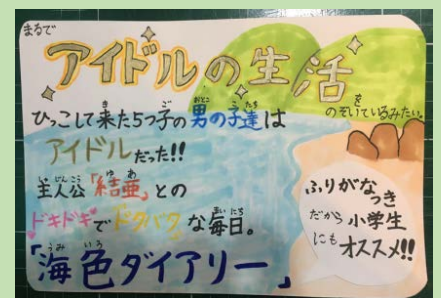 まるで
アイドルの生活
をのぞいているみたい。
ひっこして来た5つ子の男の子達は
アイドルだった!!
主人公「結亜」との
ドキドキでドタバタな毎日。
「海色ダイアリー」
ふりがなつき
だから小学生
にもオススメ!!